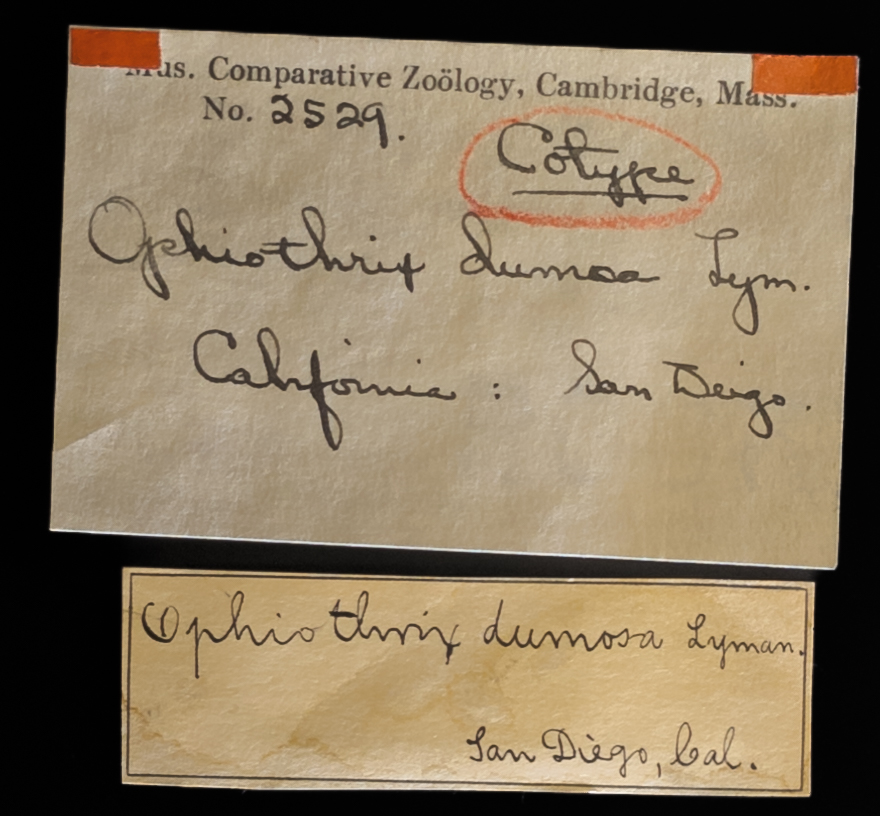 Mus. Comparative Zoölogy, Cambridge, Mass.
No. 2529.
Cotype
Ophiothrix dumosa Lym.
California : San Deigo.
Ophiothrix dumosa Lyman.
San Diego, Cal.